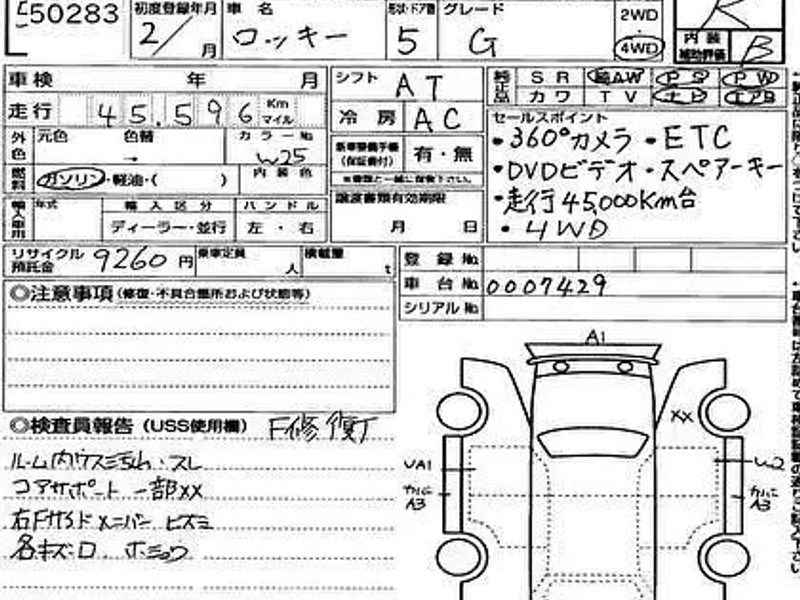 50283 初度登録年月 車名 形状・ドア数 グレード 2WD R
2/ 月 ロッキー 5 G 4WD 内装補助評価 B
車検 年 月 シフト AT 純正品 SR AW PS PW
走行 45,596 Km マイル 冷房 AC カワ TV ナビ エアB
外色 元色 色替 カラーNo 新車整備手帳(保証書付) 有・無 セールスポイント
→ W25 ※書類と一緒に保管下さい。 ・360°カメラ ・ETC
燃料 ガソリン・軽油・( ) 内装色 ・DVDビデオ・スペアーキー
輸入車用 年式 輸入区分 ハンドル 譲渡書類有効期限 ・走行45,000Km台
ディーラー・並行 左・右 月 日 ・4WD
リサイクル預託金 9260円 乗車定員 人 積載量 t 登録No
車台No 0007429
シリアルNo
◎注意事項(修復・不具合箇所および状態等)
A1
◎検査員報告(USS使用欄) F修復了
XX
ルーム内ウスミヨゴレ・スレ
UA1 W2
コアサポート一部XX
カバーA3 カバーA3
右Fサイドメンバー ヒズミ
各キズロ ホシュウ